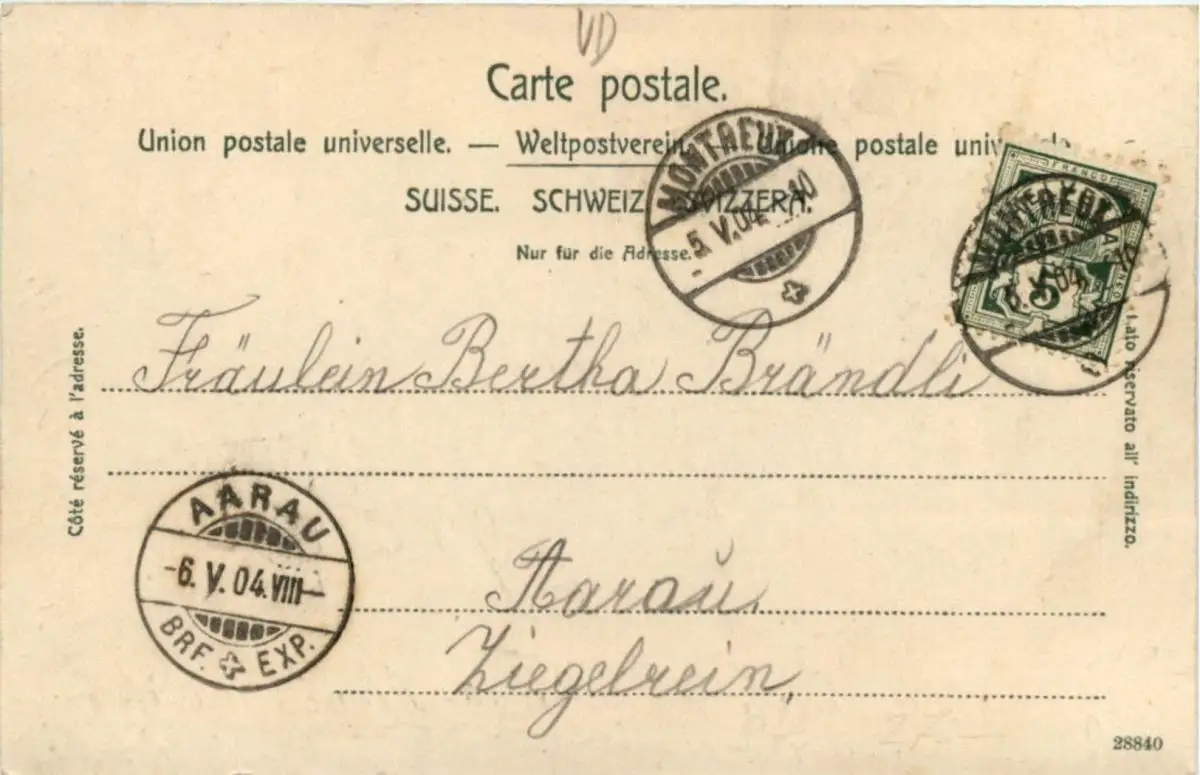 VD
Carte postale.
Union postale universelle. — Weltpostverein. — Unione postale univ
SUISSE. SCHWEIZ. SVIZZERA.
Nur für die Adresse.
MONTREUX
-5. V. 04. 10
FRANCO
MONTREUX
5
04. 10
Côté réservé à l'adresse.
Lato riservato all' indirizzo.
Fräulein Bertha Brändli
AARAU
-6. V. 04. VIII-
BRF. EXP.
Aarau,
Ziegelrein,
28840